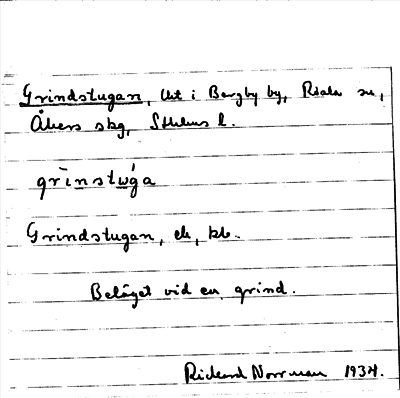 Grindstugan, lht i Bergby by, Riala sn,
Åkers skg, Sthlms l.
grinstuga
Grindstugan, ek, kb.
Beläget vid en grind.
Rickard Norrman 1934.